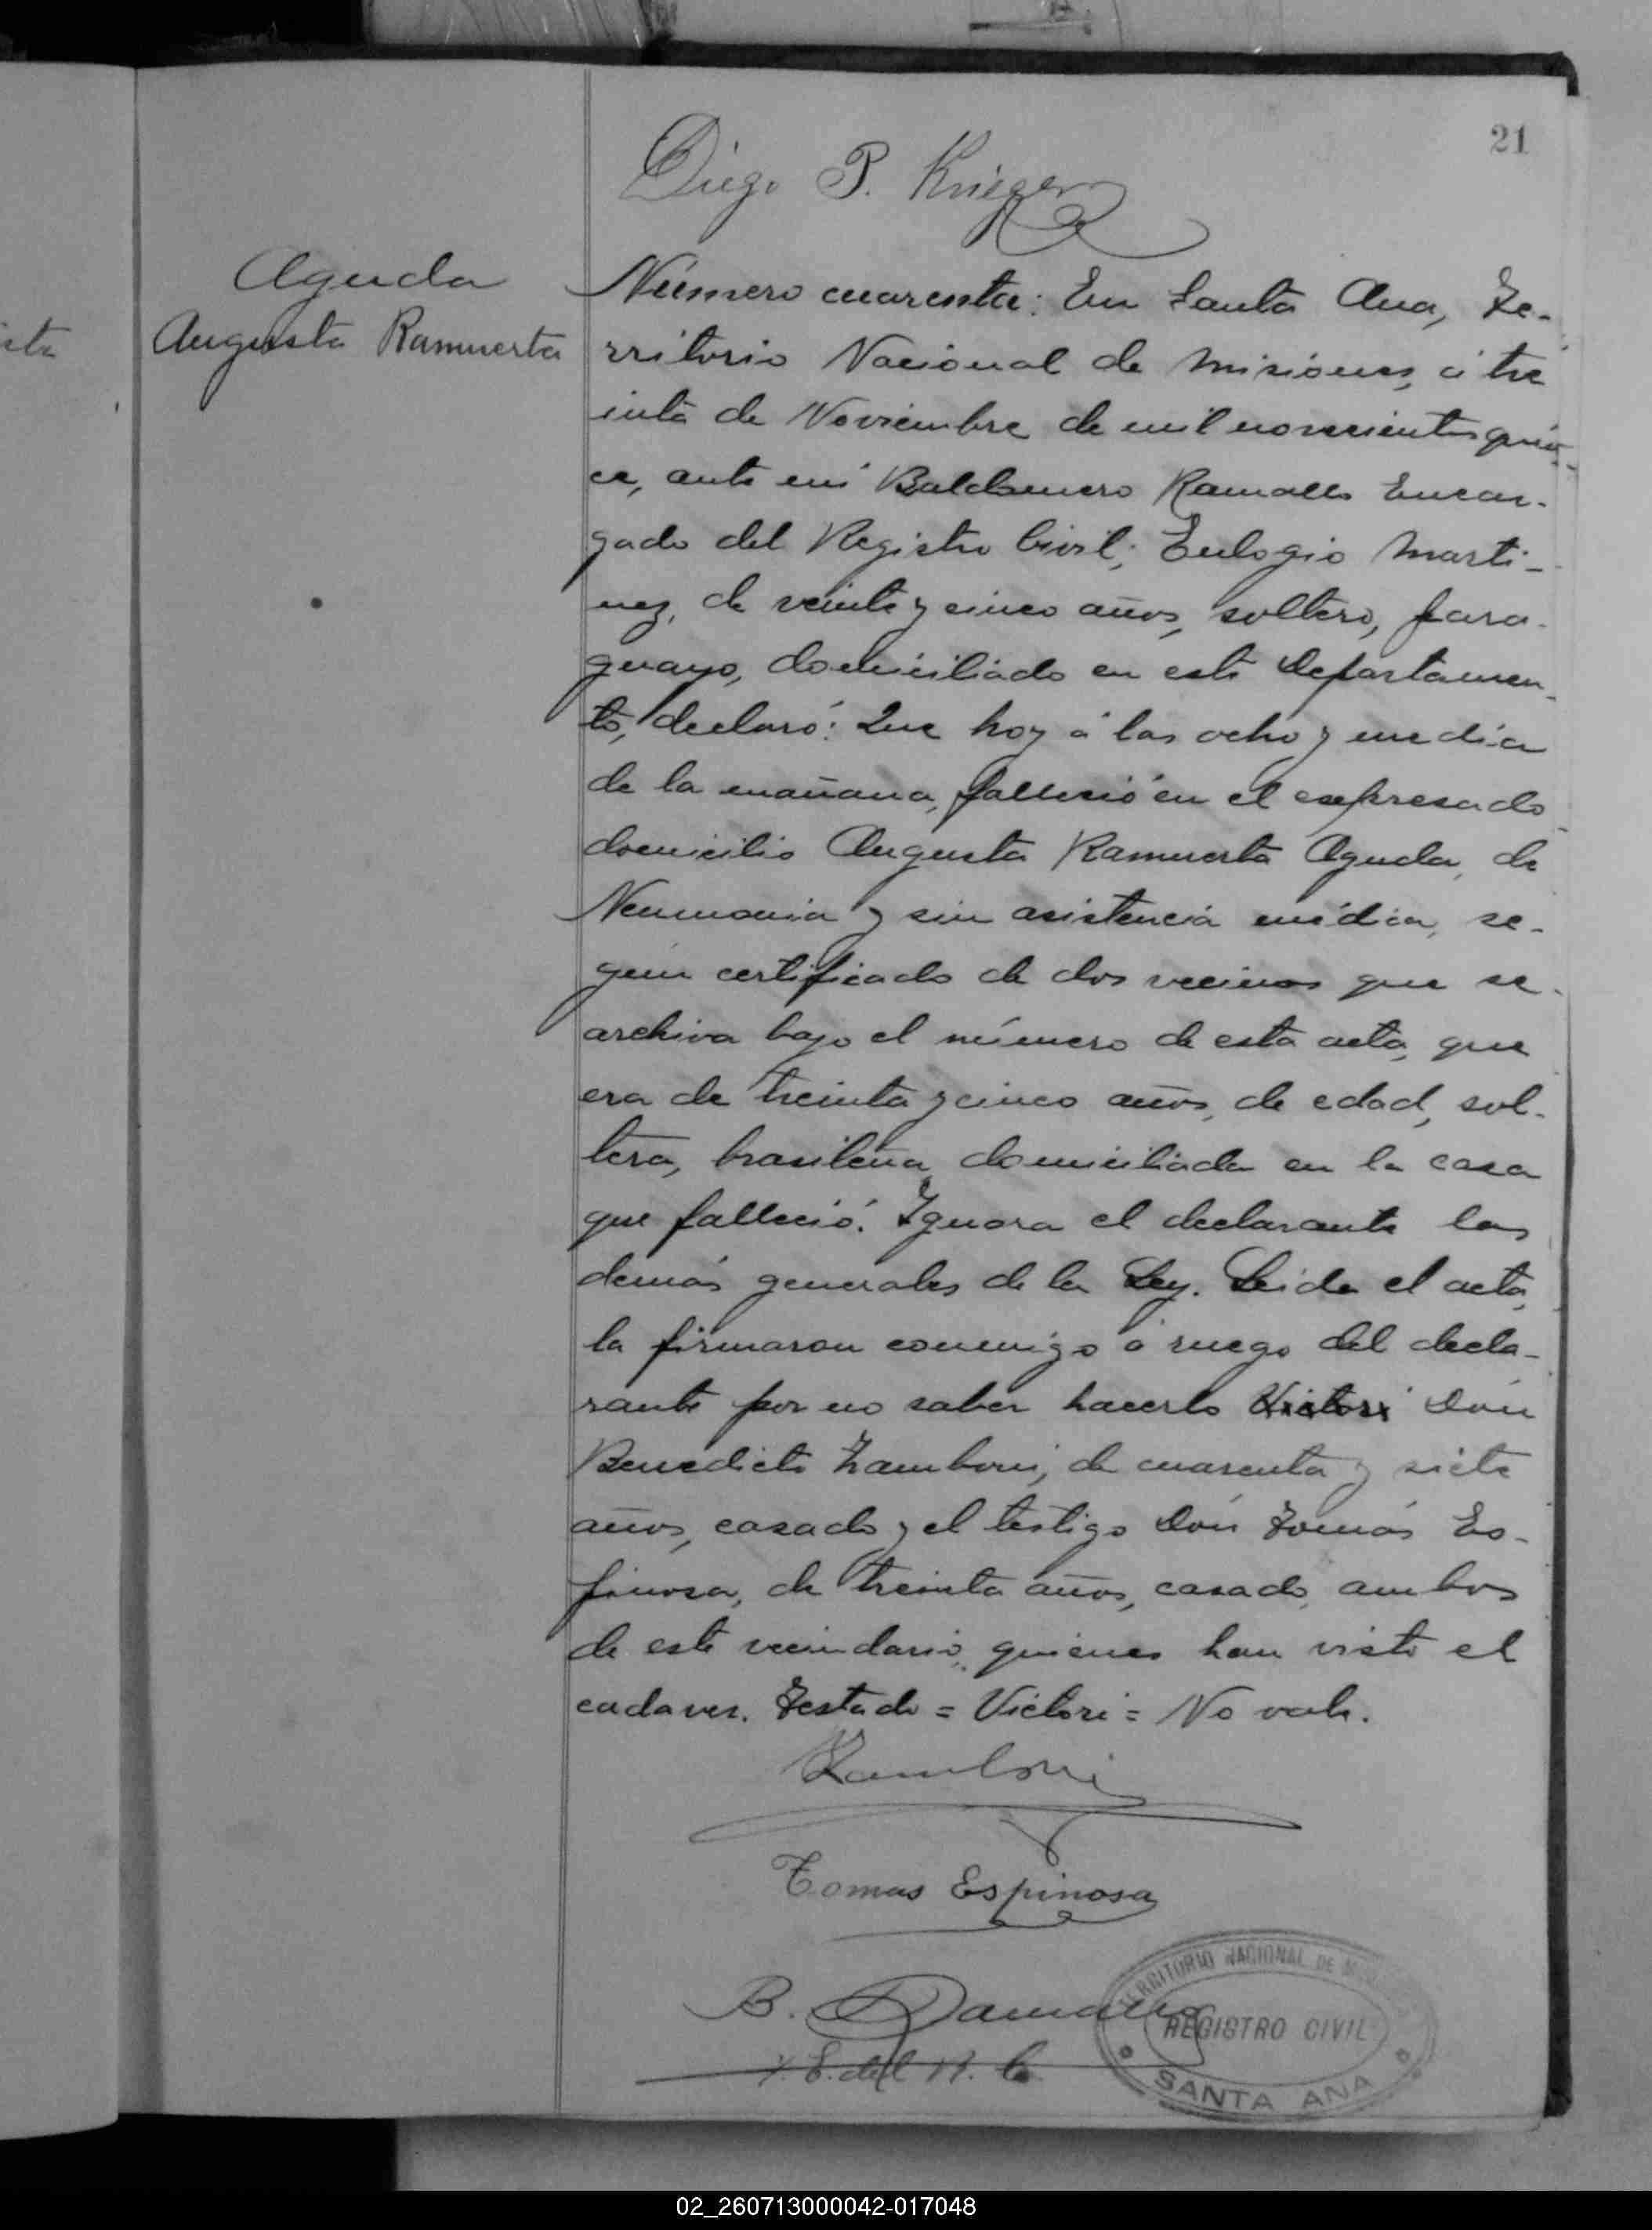 21
Diego P. Krieger
Aguda
Augusta Ramuerta
sta
Número cuarenta: En Santa Ana, Te-
rritorio Nacional de Misiones, á tre
inta de Noviembre de mil novecientos quin-
ce, ante mi Baldomero Ramallo Encar-
gado del Registro Civil; Eulogio Marti-
nez, de veinte y cinco años, soltero, para-
guayo, domiciliado en este Departamen-
to, declaró: Que hoy á las ocho y media
de la mañana, falleció en el expresado
domicilio Augusta Ramuerta Aguda, de
Neumonia y sin asistencia médica, se-
gún certificado de dos vecinos que se
archiva bajo el número de esta acta, que
era de treinta y cinco años, de edad, sol-
tera, brasileña, domiciliada en la casa
que falleció. Ignora el declarante las
demás generales de la Ley. Leida el acta,
la firmaron conmigo á ruego del decla-
rante por no saber hacerlo Victori Don
Benedicto Zamboni, de cuarenta y siete
años, casado y el testigo Don Tomás Es-
pinosa, de treinta años, casado, ambos
de este vecindario, quienes han visto el
cadaver. Testado = Victori = No vale.
Zamboni
Tomas Espinosa
B. Ramallo
E. del R. C.
TERRITORIO NACIONAL DE MISIONES
REGISTRO CIVIL
SANTA ANA
02_260713000042-017048